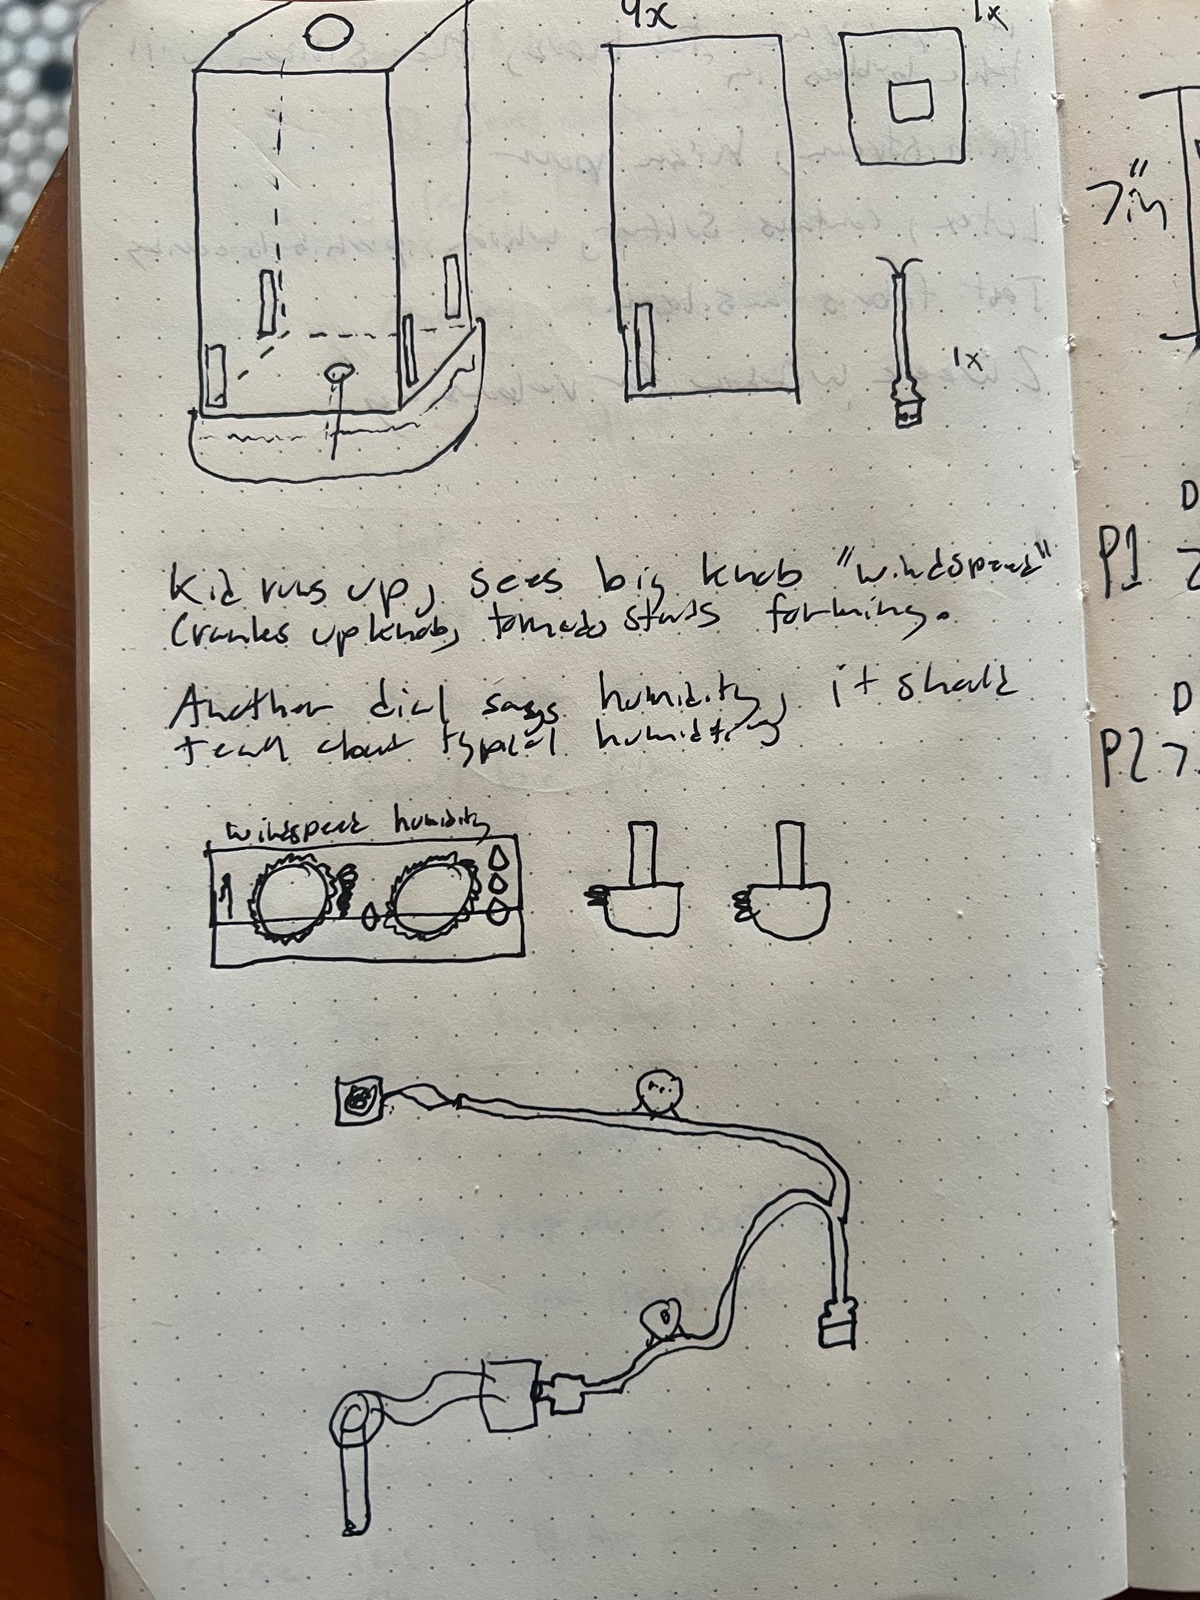 4x
1x
7in
1x
Kid runs up, sees big knob "windspeed"
Cranks up knob, tornado starts forming.
Another dial says humidity, it shall
teach about typical humidity
windspeed humidity
D
P1
D
P2 7